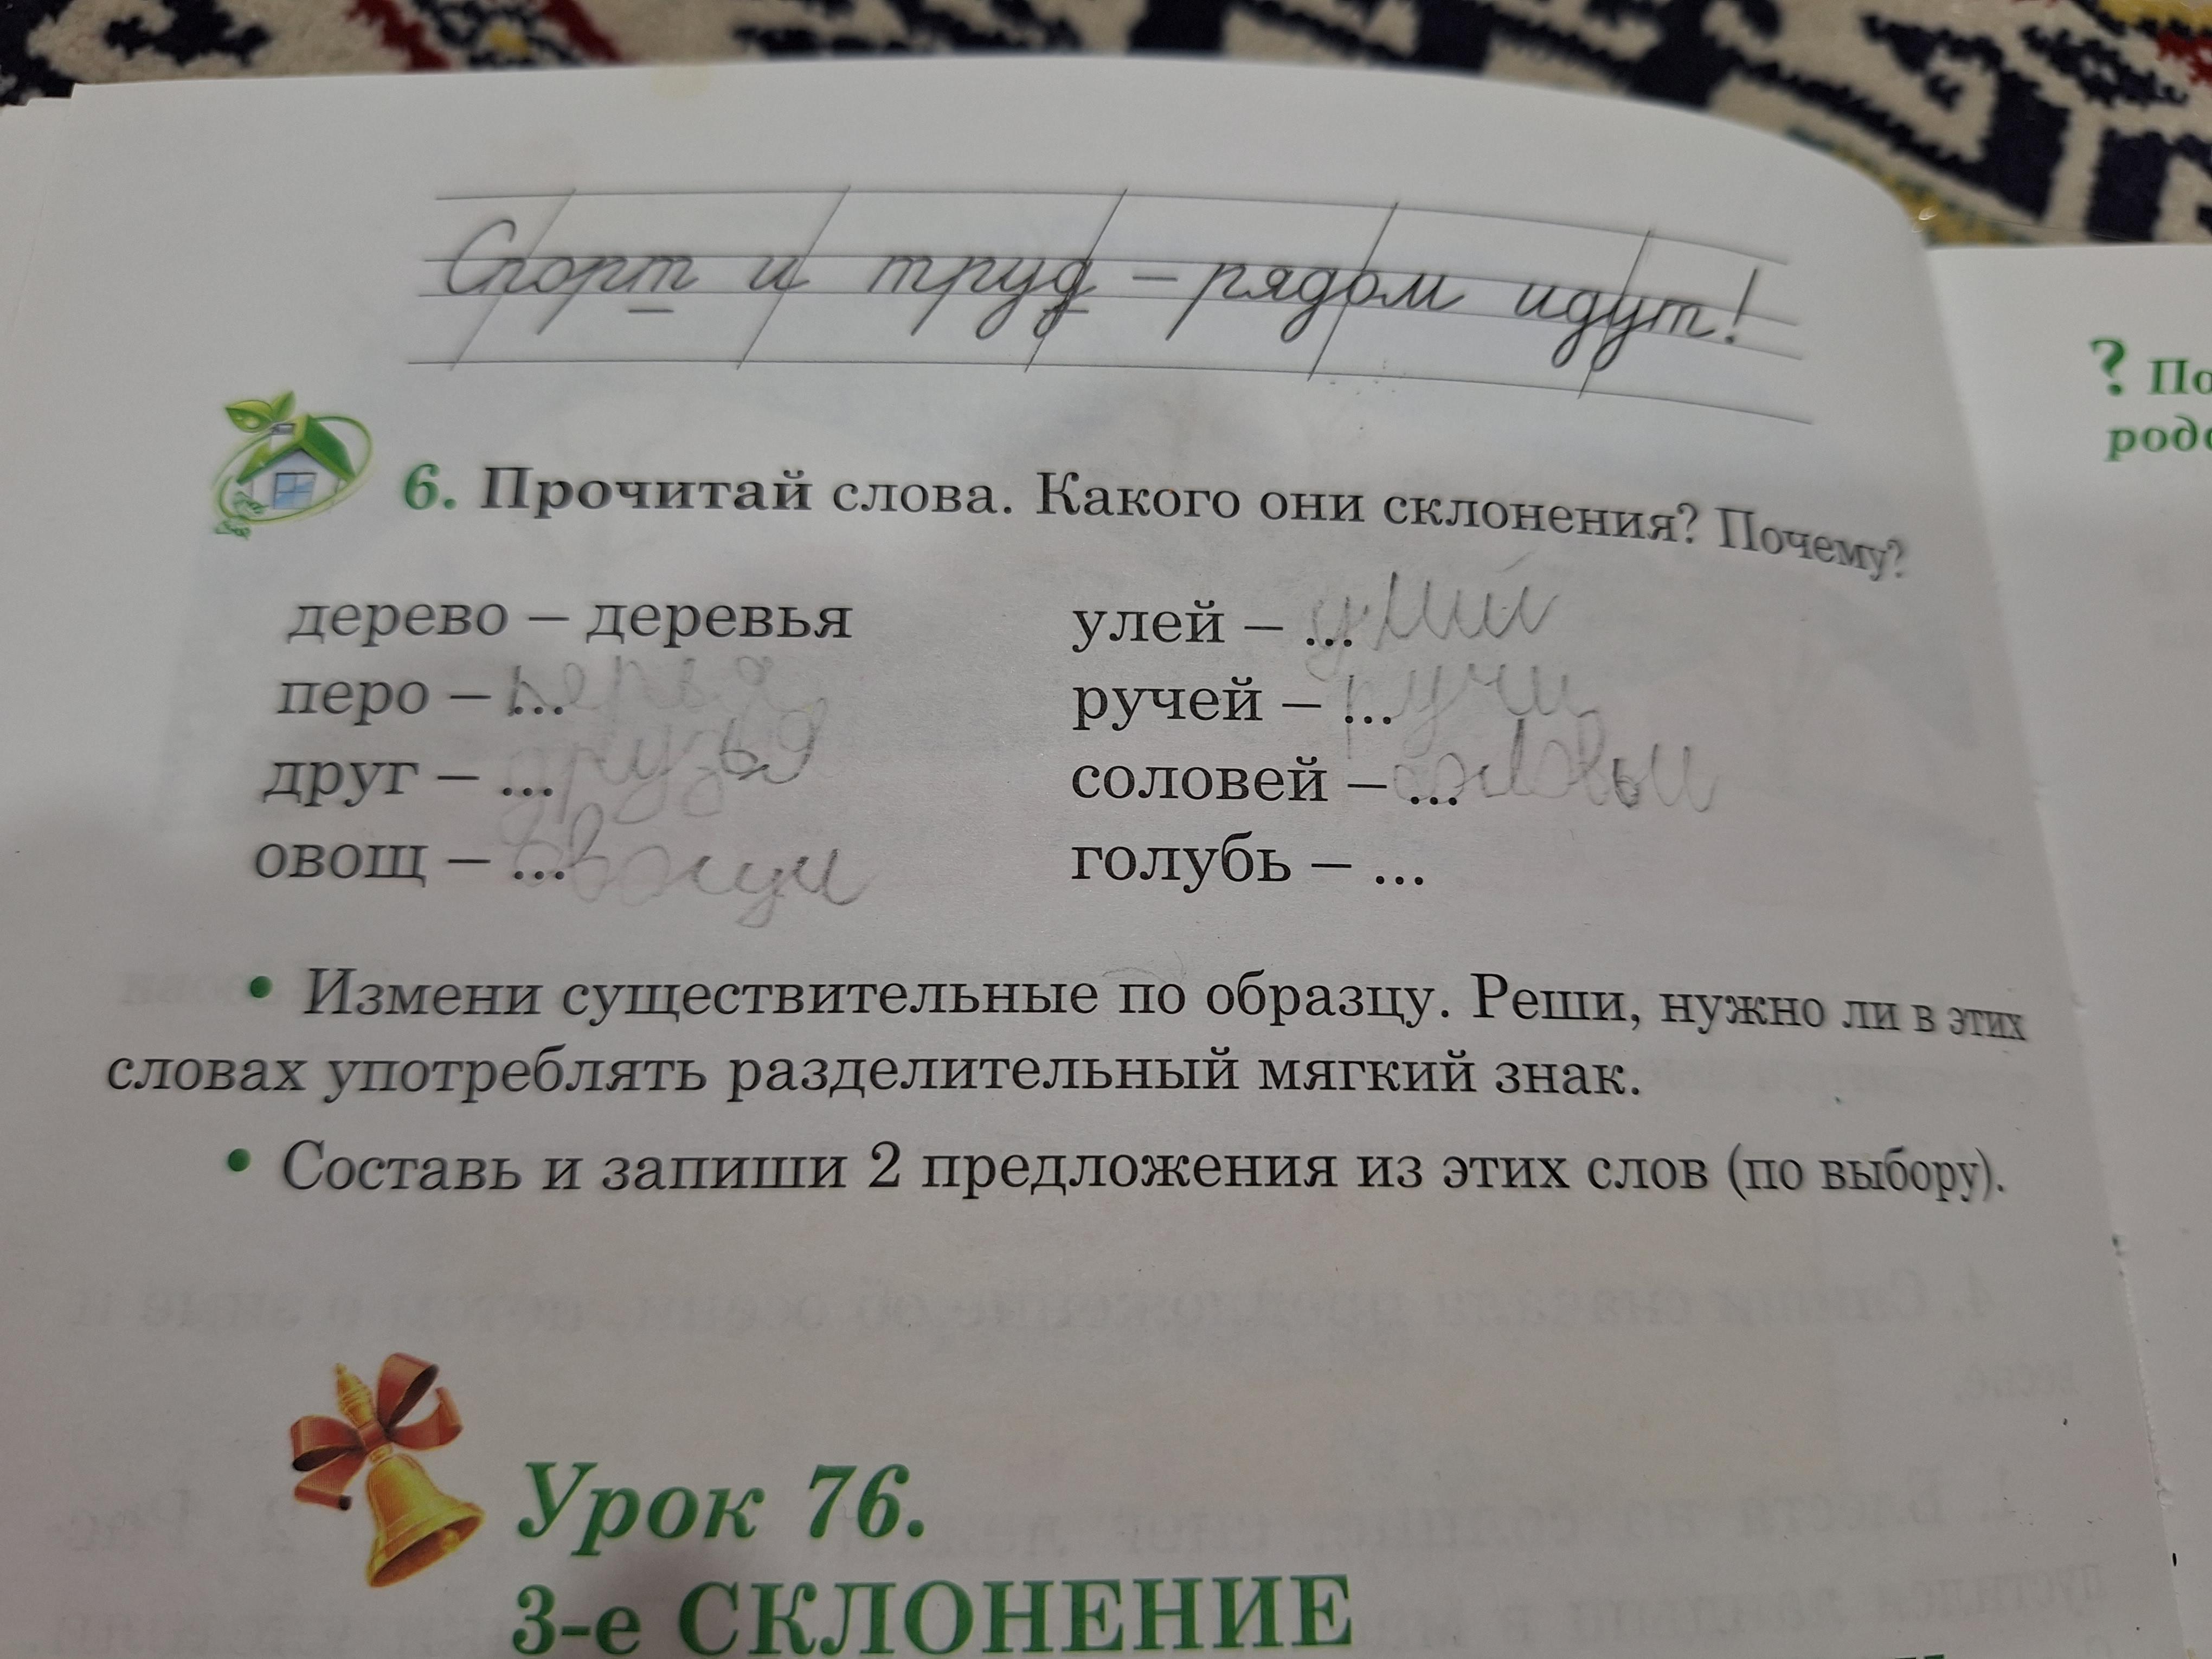 Спорт и труд – рядом идут!
6. Прочитай слова. Какого они склонения? Почему?
дерево – деревья
перо – ... перья
друг – ... друзья
овощ – ... овощи
улей – ...
ручей – ... ручи
соловей – ... соловьи
голубь – ...
• Измени существительные по образцу. Реши, нужно ли в этих
словах употреблять разделительный мягкий знак.
• Составь и запиши 2 предложения из этих слов (по выбору).
Урок 76.
3-е СКЛОНЕНИЕ
? По
родо